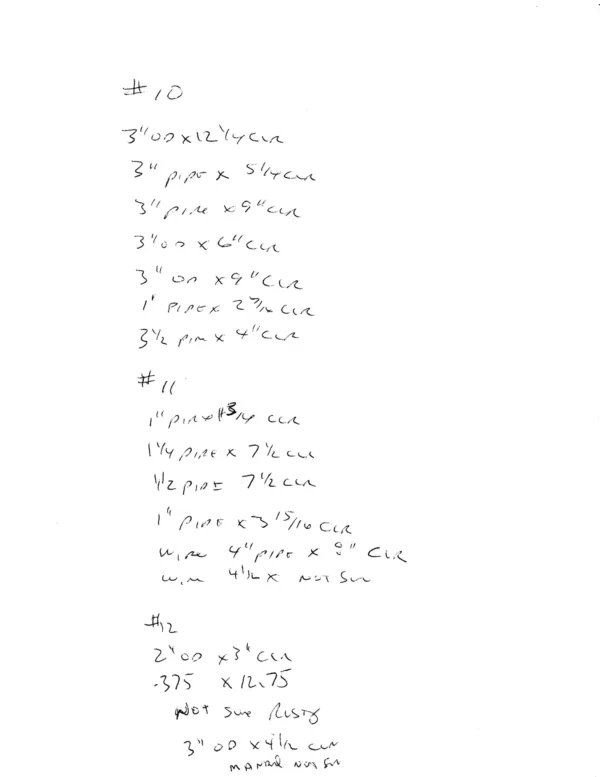 #10
3" OD x 12 1/4 CLR
3" PIPE x 5 1/4 CLR
3" PIPE x 9" CLR
3" OD x 6" CLR
3" OD x 9" CLR
1" PIPE x 2 CLR
3 1/2 PIPE x 4" CLR
#11
1" PIPE x CLR
1 1/4 PIPE x 7 1/2 CLR
1/2 PIPE 7 1/2 CLR
1" PIPE x 3 15/16 CLR
4" PIPE x CLR
4 1/2 x NOT Sure
#12
2" OD x 3" CLR
.375 x 12.75
Not Sure Rusty
3" OD x 4 1/2 CLR
NOT Sure